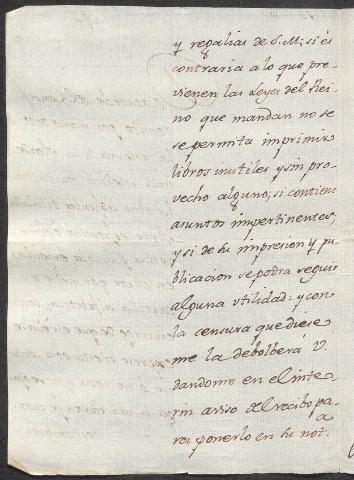 y regalias de S. M; si es
contraria a lo que pre-
vienen las Leyes del Rei-
no que mandan no se
se permita imprimir
libros inutiles y sin pro-
vecho alguno; si contiene
asuntos impertinentes;
y si de su impresion y pu
blicacion se podra seguir
alguna utilidad: y con
la censura que diese
me la debolberá V.
dandome en el inte
rin aviso del recibo pa-
ra ponerlo en su not.a